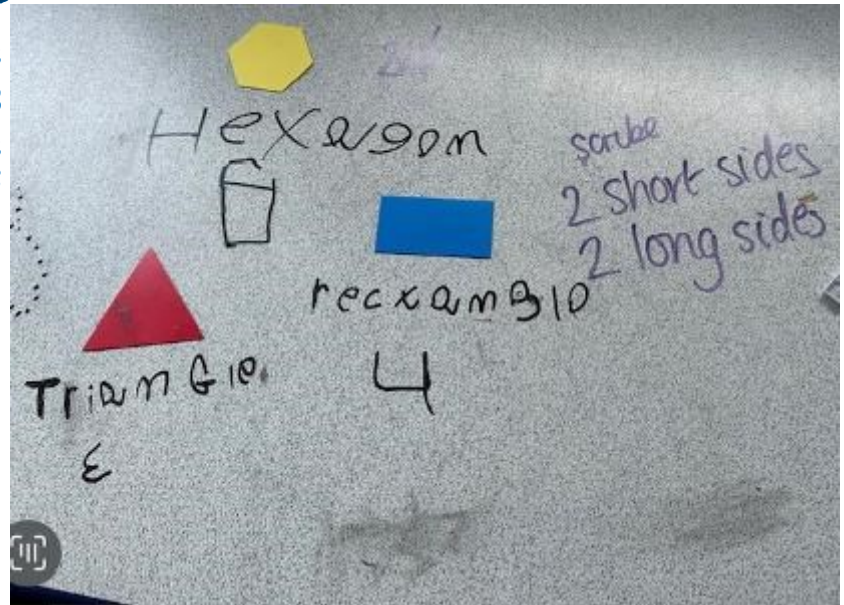 Hexagon
6
scribe
2 short sides
2 long sides
recxangle
4
TrianGle
3